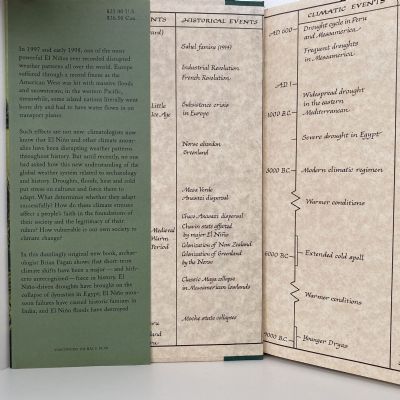 $25.00 U.S.
$36.50 Can.
In 1997 and early 1998, one of the most
powerful El Niños ever recorded disrupted
weather patterns all over the world. Europe
suffered through a record freeze as the
American West was hit with massive floods
and snowstorms; in the western Pacific,
meanwhile, some island nations literally went
bone dry and had to have water flown in on
transport planes.
Such effects are not new: climatologists now
know that El Niño and other climate anom-
alies have been disrupting weather patterns
throughout history. But until recently, no one
had asked how this new understanding of the
global weather system related to archaeology
and history. Droughts, floods, heat and cold
put stress on cultures and force them to
adapt. What determines whether they adapt
successfully? How do these climate stresses
affect a people's faith in the foundations of
their society and the legitimacy of their
rulers? How vulnerable is our own society to
climate change?
In this dazzlingly original new book, archae-
ologist Brian Fagan shows that short-term
climate shifts have been a major — and hith-
erto unrecognized — force in history. El
Niño-driven droughts have brought on the
collapse of dynasties in Egypt; El Niño mon-
soon failures have caused historic famines in
India; and El Niño floods have destroyed
CONTINUED ON BACK FLAP
Little
Ice Age
Medieval
Warm
Period
HISTORICAL EVENTS
Sahel famine
Industrial Revolution
French Revolution
Subsistence crisis
in Europe
Norse abandon
Greenland
Mesa Verde
Anasazi dispersal
Chaco Anasazi dispersal
Chavin state affected
by major El Niño
Colonization of New Zealand
Colonization of Greenland
by the Norse
Classic Maya collapse
in Mesoamerican lowlands
Moche state collapses
CLIMATIC EVENTS
AD 600
Drought cycle in Peru
and Mesoamerica
Frequent droughts
in Mesoamerica
AD 1
Widespread drought
in the eastern
Mediterranean
1000 B.C.
Severe drought in Egypt
3000 B.C.
Modern climatic regimen
Warmer conditions
6000 B.C.
Extended cold spell
Warmer conditions
9000 B.C.
Younger Dryas